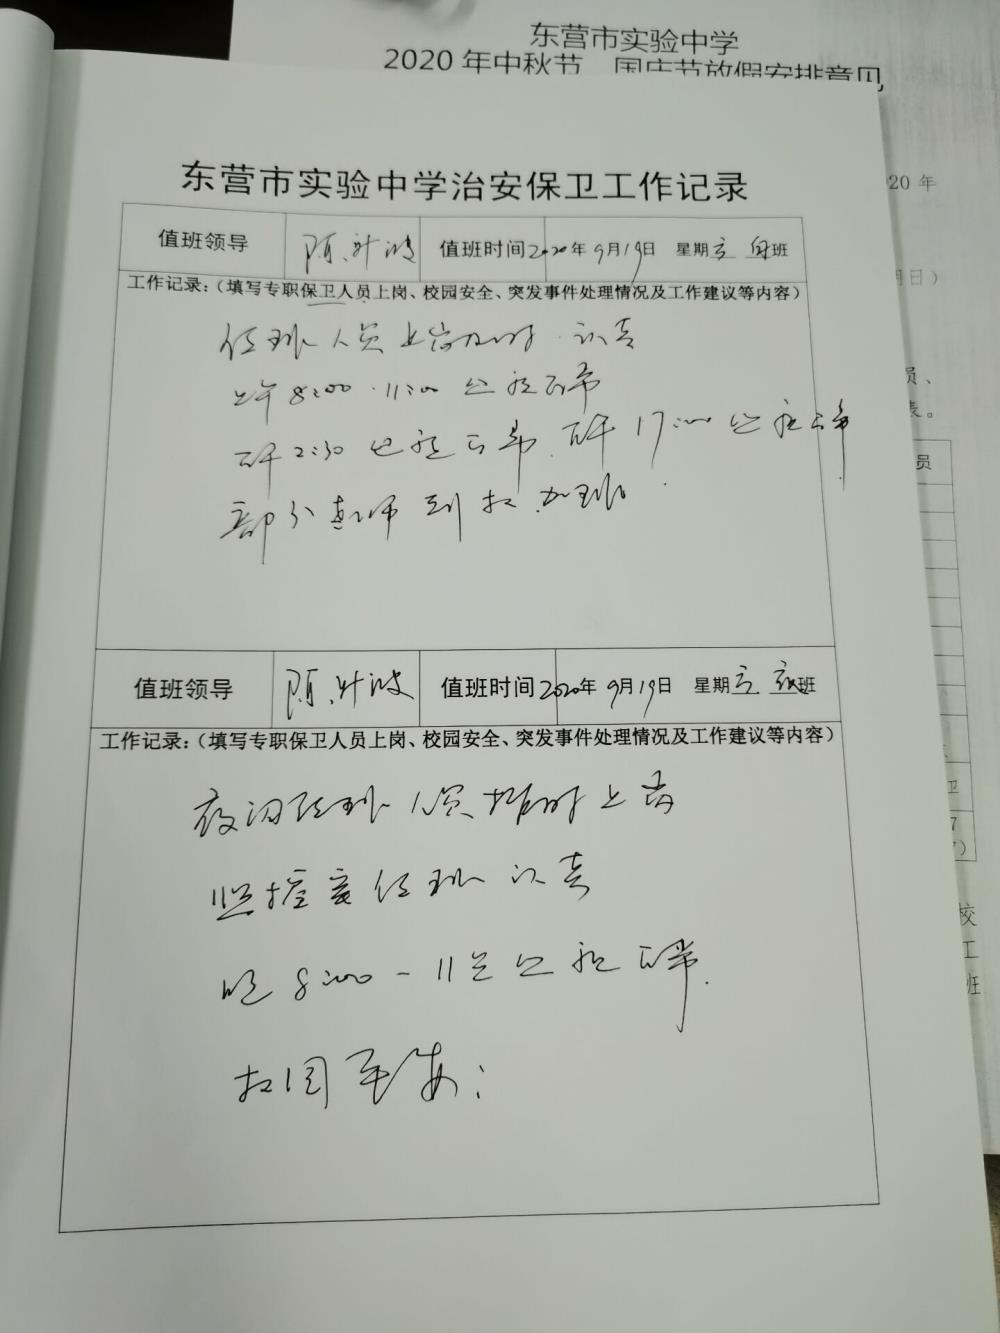 东营市实验中学
2020年中秋节、国庆节放假安排意见
020年
明日）
员、
表。
员
卫
7
）
校
工
班
东营市实验中学治安保卫工作记录
值班领导 陈 值班时间2020年9月19日 星期六 白班
工作记录：（填写专职保卫人员上岗、校园安全、突发事件处理情况及工作建议等内容）
值班人员上岗及时.认真
上午8:00·11:00巡视正常
下午2:30巡视正常.下午17:00巡视正常
部分教师到校加班.
值班领导 陈 值班时间2020年9月19日 星期六 夜班
工作记录：（填写专职保卫人员上岗、校园安全、突发事件处理情况及工作建议等内容）
夜间值班人员按时上岗
监控室值班认真
晚8:00-11点巡视正常.
校园平安；